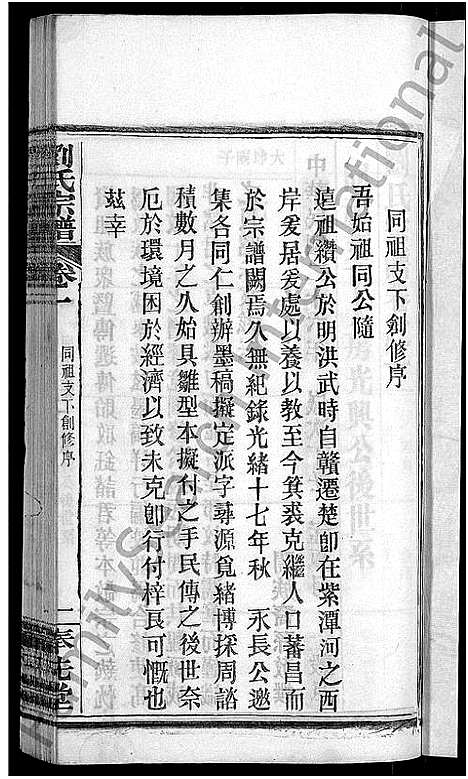 同祖支下創修序
吾始祖同公隨
遠祖纘公於明洪武時自贛遷楚卽在紫潭河之西
岸爰居爰處以養以教至今箕裘克繼人口蕃昌而
於宗譜闕焉久無紀錄光緒十七年秋 永長公邀
集各同仁創辦墨稿擬定派字尋源覓緒博採周諮
積數月之久始具雛型本擬付之手民傳之後世奈
厄於環境困於經濟以致未克卽行付梓良可慨也
茲幸
劉氏宗譜 卷一 同祖支下創修序 一 奉先堂